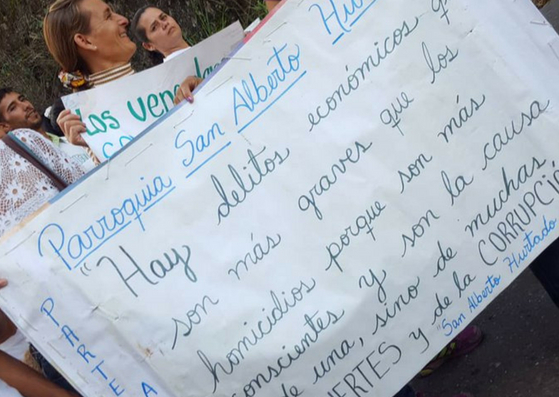 Los Vene
Parroquia San Alberto Hur
"Hay delitos económicos q
son más graves que los
homicidios porque son más
conscientes y son la causa
de una, sino de muchas
ERTES y de la CORRUPCIO
"San Alberto Hurtado
PARTE
A